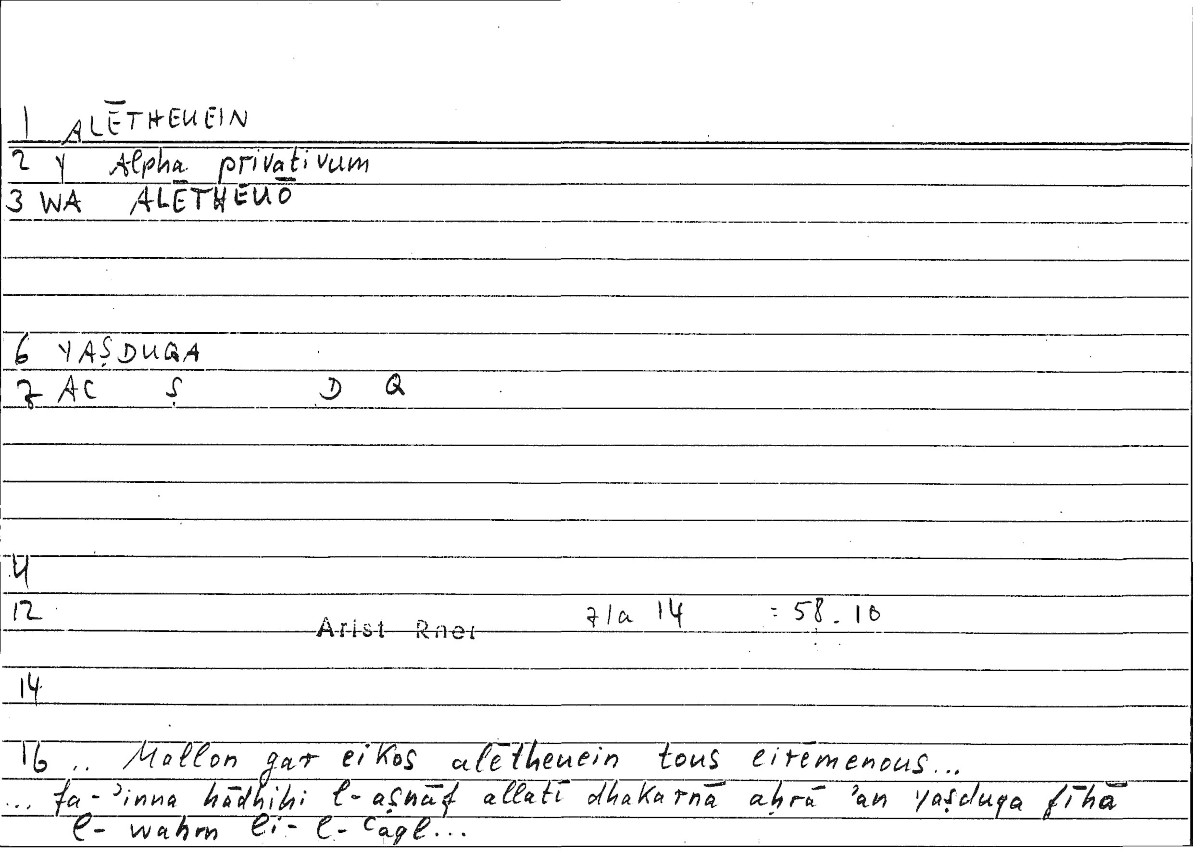 1 ALĒTHEUEIN
2 Y Alpha privativum
3 WA ALĒTHEUŌ
6 YAṢDUQA
7 AC Ṣ D Q
4
12 Arist Rhet 71a 14 = 58.10
14
16 .. Mallon gar eikos alētheuein tous eirēmenous...
... fa-'inna hādhihi l-aṣnāf allatī dhakarnā aḥrā 'an yaṣduqa fīhā
l- wahm li- l- cagl...